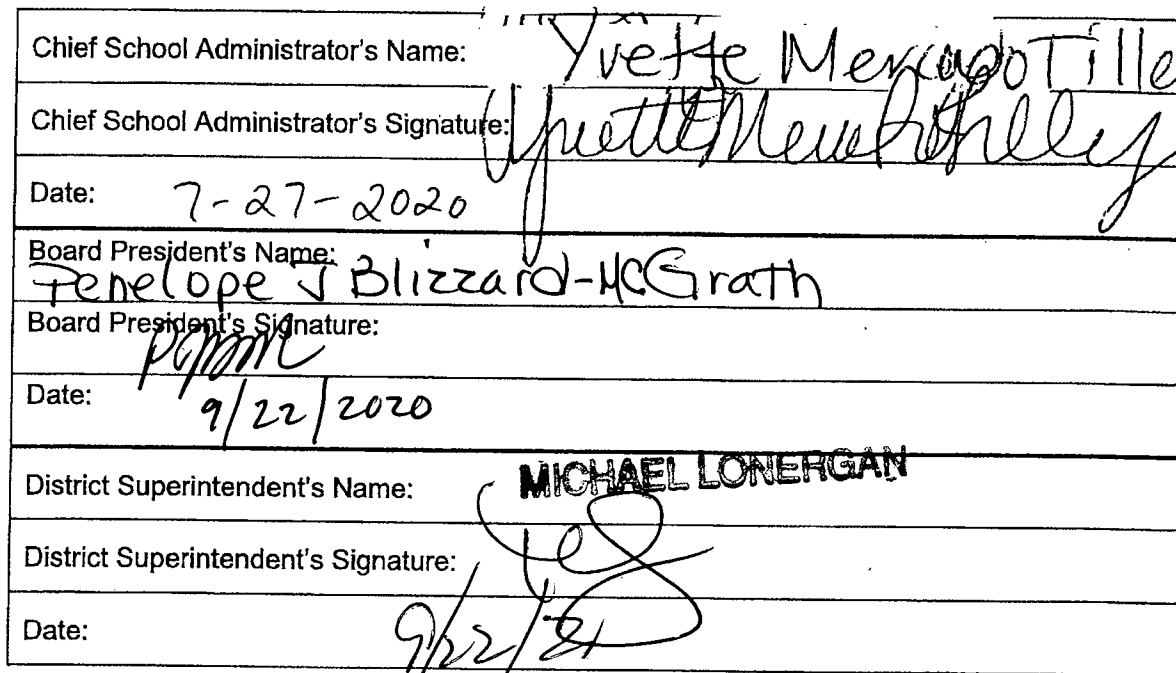 Chief School Administrator's Name: Yvette Mercado Tille
Chief School Administrator's Signature:
Date: 7-27-2020
Board President's Name:
Penelope J Blizzard-McGrath
Board President's Signature:
Date: 9/22/2020
District Superintendent's Name: MICHAEL LONERGAN
District Superintendent's Signature:
Date: 9/22/21